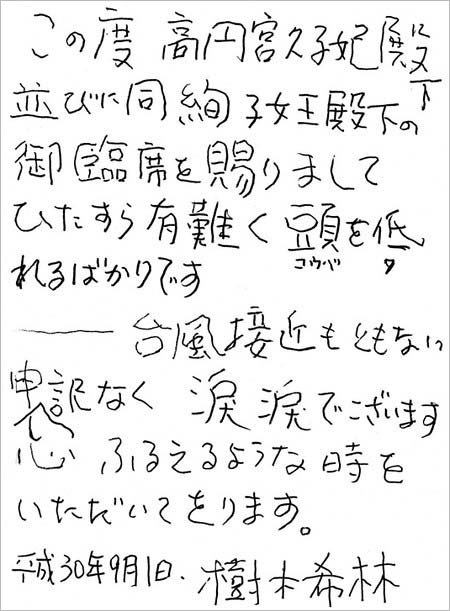 この度 高円宮久子妃殿下に
並びに同絢子女王殿下の
御臨席を賜りまして
ひたすら有難く頭を低
コウベ タ
れるばかりです
―― 台風接近もともない
申し訳なく 涙涙でございます
心ふるえるような時を
いただいてをります。
平成30年9月1日. 樹木希林